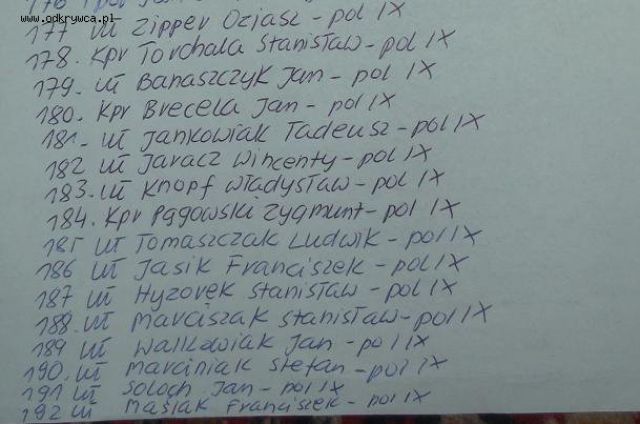 www.odkrywca.pl
177 uł Zipper Ozjasz - pol IX
178. Kpr Torchala Stanisław - pol IX
179. uł Banaszczyk Jan - pol IX
180. Kpr Brecela Jan - pol IX
181. uł Jankowiak Tadeusz - pol IX
182 uł Jaracz Wincenty - pol IX
183. uł Knopf Władysław - pol IX
184. Kpr Pągowski Zygmunt - pol IX
185 uł Tomaszczak Ludwik - pol IX
186 uł Jasik Franciszek - pol IX
187 uł Hyzorek Stanisław - pol IX
188. uł Marciszak Stanisław - pol IX
189 uł Walkowiak Jan - pol IX
190. uł Marciniak Stefan - pol IX
191 uł Soloch Jan - pol IX
192 uł Maślak Franciszek - pol IX